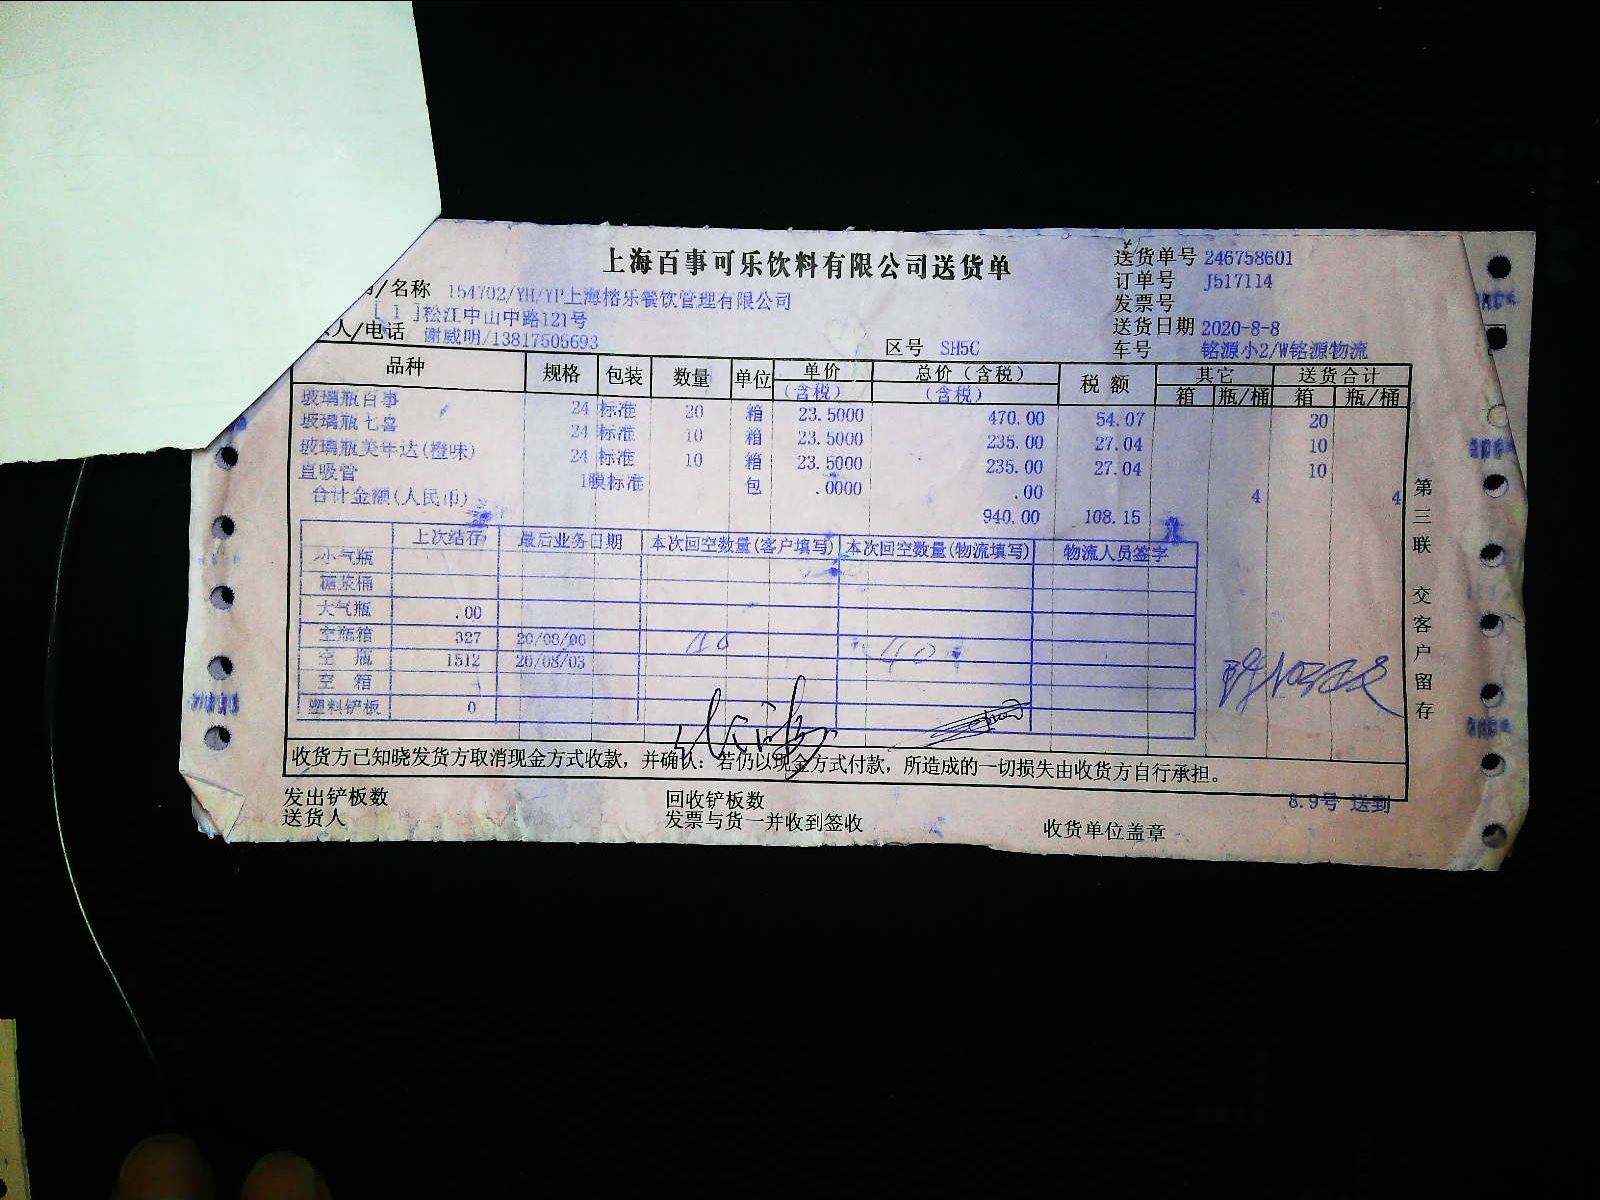 上海百事可乐饮料有限公司送货单
送货单号 246758601
订单号 J517114
发票号
送货日期 2020-8-8
车号 铭源小2/W铭源物流
/名称 154702/YH/YP上海榕乐餐饮管理有限公司
[ 1 ]松江中山中路121号
人/电话 谢威明/13817505693
区号 SH5C
品种 规格 包装 数量 单位 单价(含税) 总价(含税) 税额 其它 送货合计
(含税) 箱 瓶/桶 箱 瓶/桶
玻璃瓶百事 24 标准 20 箱 23.5000 470.00 54.07 20
玻璃瓶七喜 24 标准 10 箱 23.5000 235.00 27.04 10
玻璃瓶美年达(橙味) 24 标准 10 箱 23.5000 235.00 27.04 10
直吸管 1膜标准 包 .0000 .00 4 4
合计金额(人民币) 940.00 108.15
上次结存 最后业务日期 本次回空数量(客户填写) 本次回空数量(物流填写) 物流人员签字
小气瓶
糖浆桶
大气瓶 .00
空瓶箱 327 20/08/06 40 40
空 瓶 1512 20/08/03
空 箱
塑料铲板 0
收货方已知晓发货方取消现金方式收款，并确认：若仍以现金方式付款，所造成的一切损失由收货方自行承担。
发出铲板数 回收铲板数 8.9号 送到
送货人 发票与货一并收到签收 收货单位盖章
第三联 交客户留存